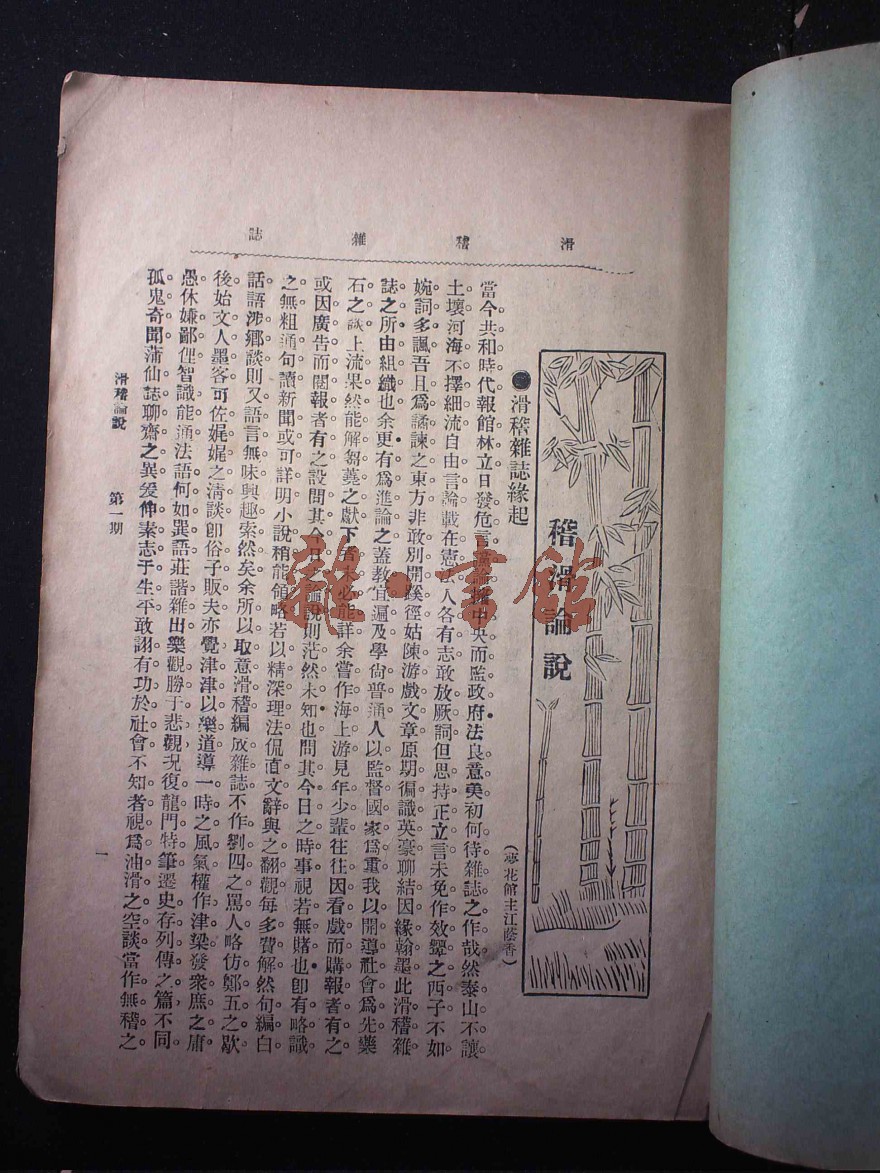 滑稽雜誌
稽滑論說
●滑稽雜誌緣起
(夢花館主江蔭香)
當今共和時代報館林立日發危言讜論據中央而監政府法良意美初何待雜誌之作哉然泰山不讓
土壤河海不擇細流自由言論載在憲法人各有志敢放厥詞但思持正立言未免作效顰之西子不如
婉詞多諷吾且爲譎諫之東方非敢別開蹊徑姑陳游戲文章原期徧識英豪聊結因緣翰墨此滑稽雜
誌之所由組織也余更有爲進論之蓋教宜遍及學尙普通人以監督國家爲重我以開導社會爲先藥
石之談上流果然能解芻蕘之獻下者未必能詳余嘗作海上游見年少輩往往因看戲而購報者有之
或因廣告而閱報者有之設問其今日之論說則茫然未知也問其今日之時事視若無睹也卽有略識
之無粗通句讀新聞或可詳明小說稍能領略若以精深理法侃直文辭與之翻觀每多費解然句編白
話語涉鄉談則又語言無味興趣索然矣余所以取意滑稽編放雜誌不作劉四之罵人略仿鄭五之歇
後始文人墨客可佐娓娓之清談卽俗子販夫亦覺津津以樂道導一時之風氣權作津梁發衆庶之庸
愚休嫌鄙俚智識能通法語何如巽語莊諧雜出樂觀勝于悲觀况復龍門特筆遷史存列傳之篇不同
孤鬼奇聞蒲仙誌聊齋之異爰伸素志于生平敢詡有功於社會不知者視爲油滑之空談當作無稽之
滑稽論說　第一期
一
龍·言館